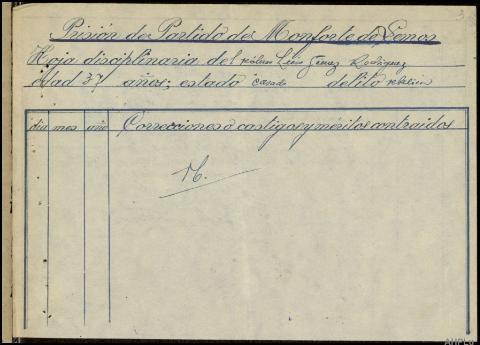 Prisión de Partido de Monforte de Lemos
Hoja disciplinaria del Luis Rodriguez
edad 37 años; estado casado delito rebelion
dia mes año Correcciones ó castigos y méritos contraidos